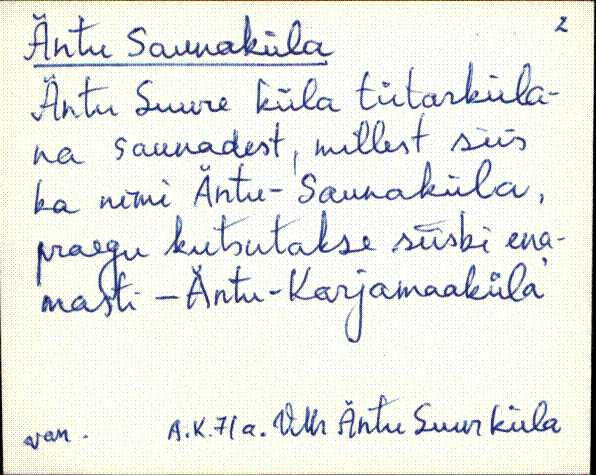 2
Äntu Saunaküla
Äntu Suure küla tütarküla-
na saunadest, millest siis
ka nimi Äntu-Saunaküla,
praegu kutsutakse siiski ena-
masti – Äntu-Karjamaaküla
van. A.K. 71a. VMr Äntu Suurküla